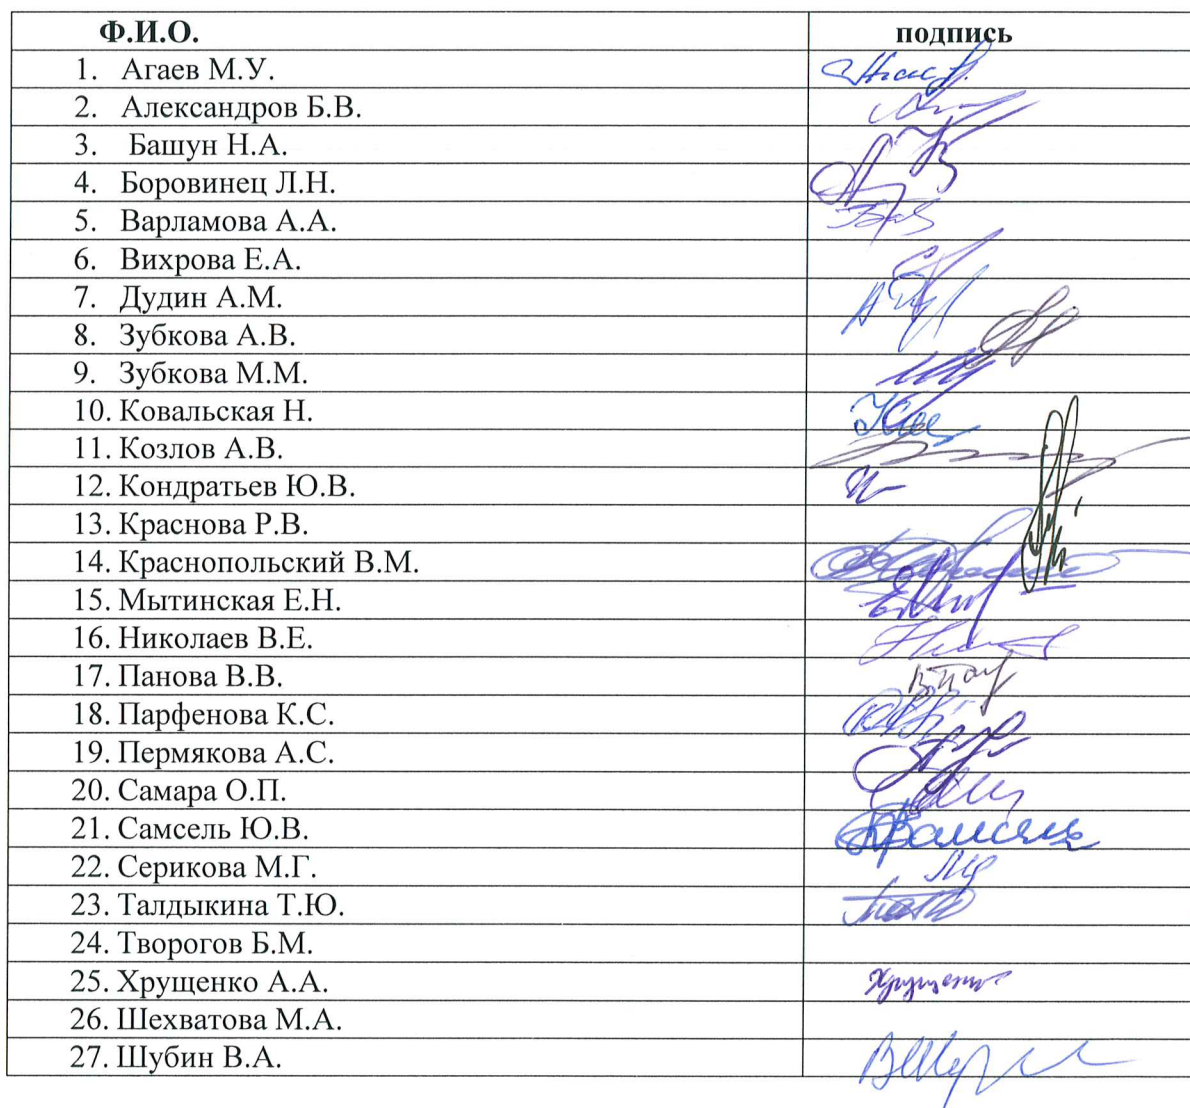 Ф.И.О. подпись
1. Агаев М.У.
2. Александров Б.В.
3. Башун Н.А.
4. Боровинец Л.Н.
5. Варламова А.А.
6. Вихрова Е.А.
7. Дудин А.М.
8. Зубкова А.В.
9. Зубкова М.М.
10. Ковальская Н.
11. Козлов А.В.
12. Кондратьев Ю.В.
13. Краснова Р.В.
14. Краснопольский В.М.
15. Мытинская Е.Н.
16. Николаев В.Е.
17. Панова В.В.
18. Парфенова К.С.
19. Пермякова А.С.
20. Самара О.П.
21. Самсель Ю.В.
22. Серикова М.Г.
23. Талдыкина Т.Ю.
24. Творогов Б.М.
25. Хрущенко А.А. Хрущенко
26. Шехватова М.А.
27. Шубин В.А.